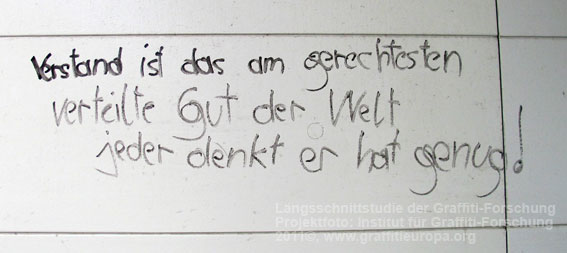 Verstand ist das am gerechtesten
verteilte Gut der Welt
jeder denkt er hat genug!
Längsschnittstudie der Graffiti-Forschung
Projektfoto: Institut für Graffiti-Forschung
2011©, www.graffitieuropa.org